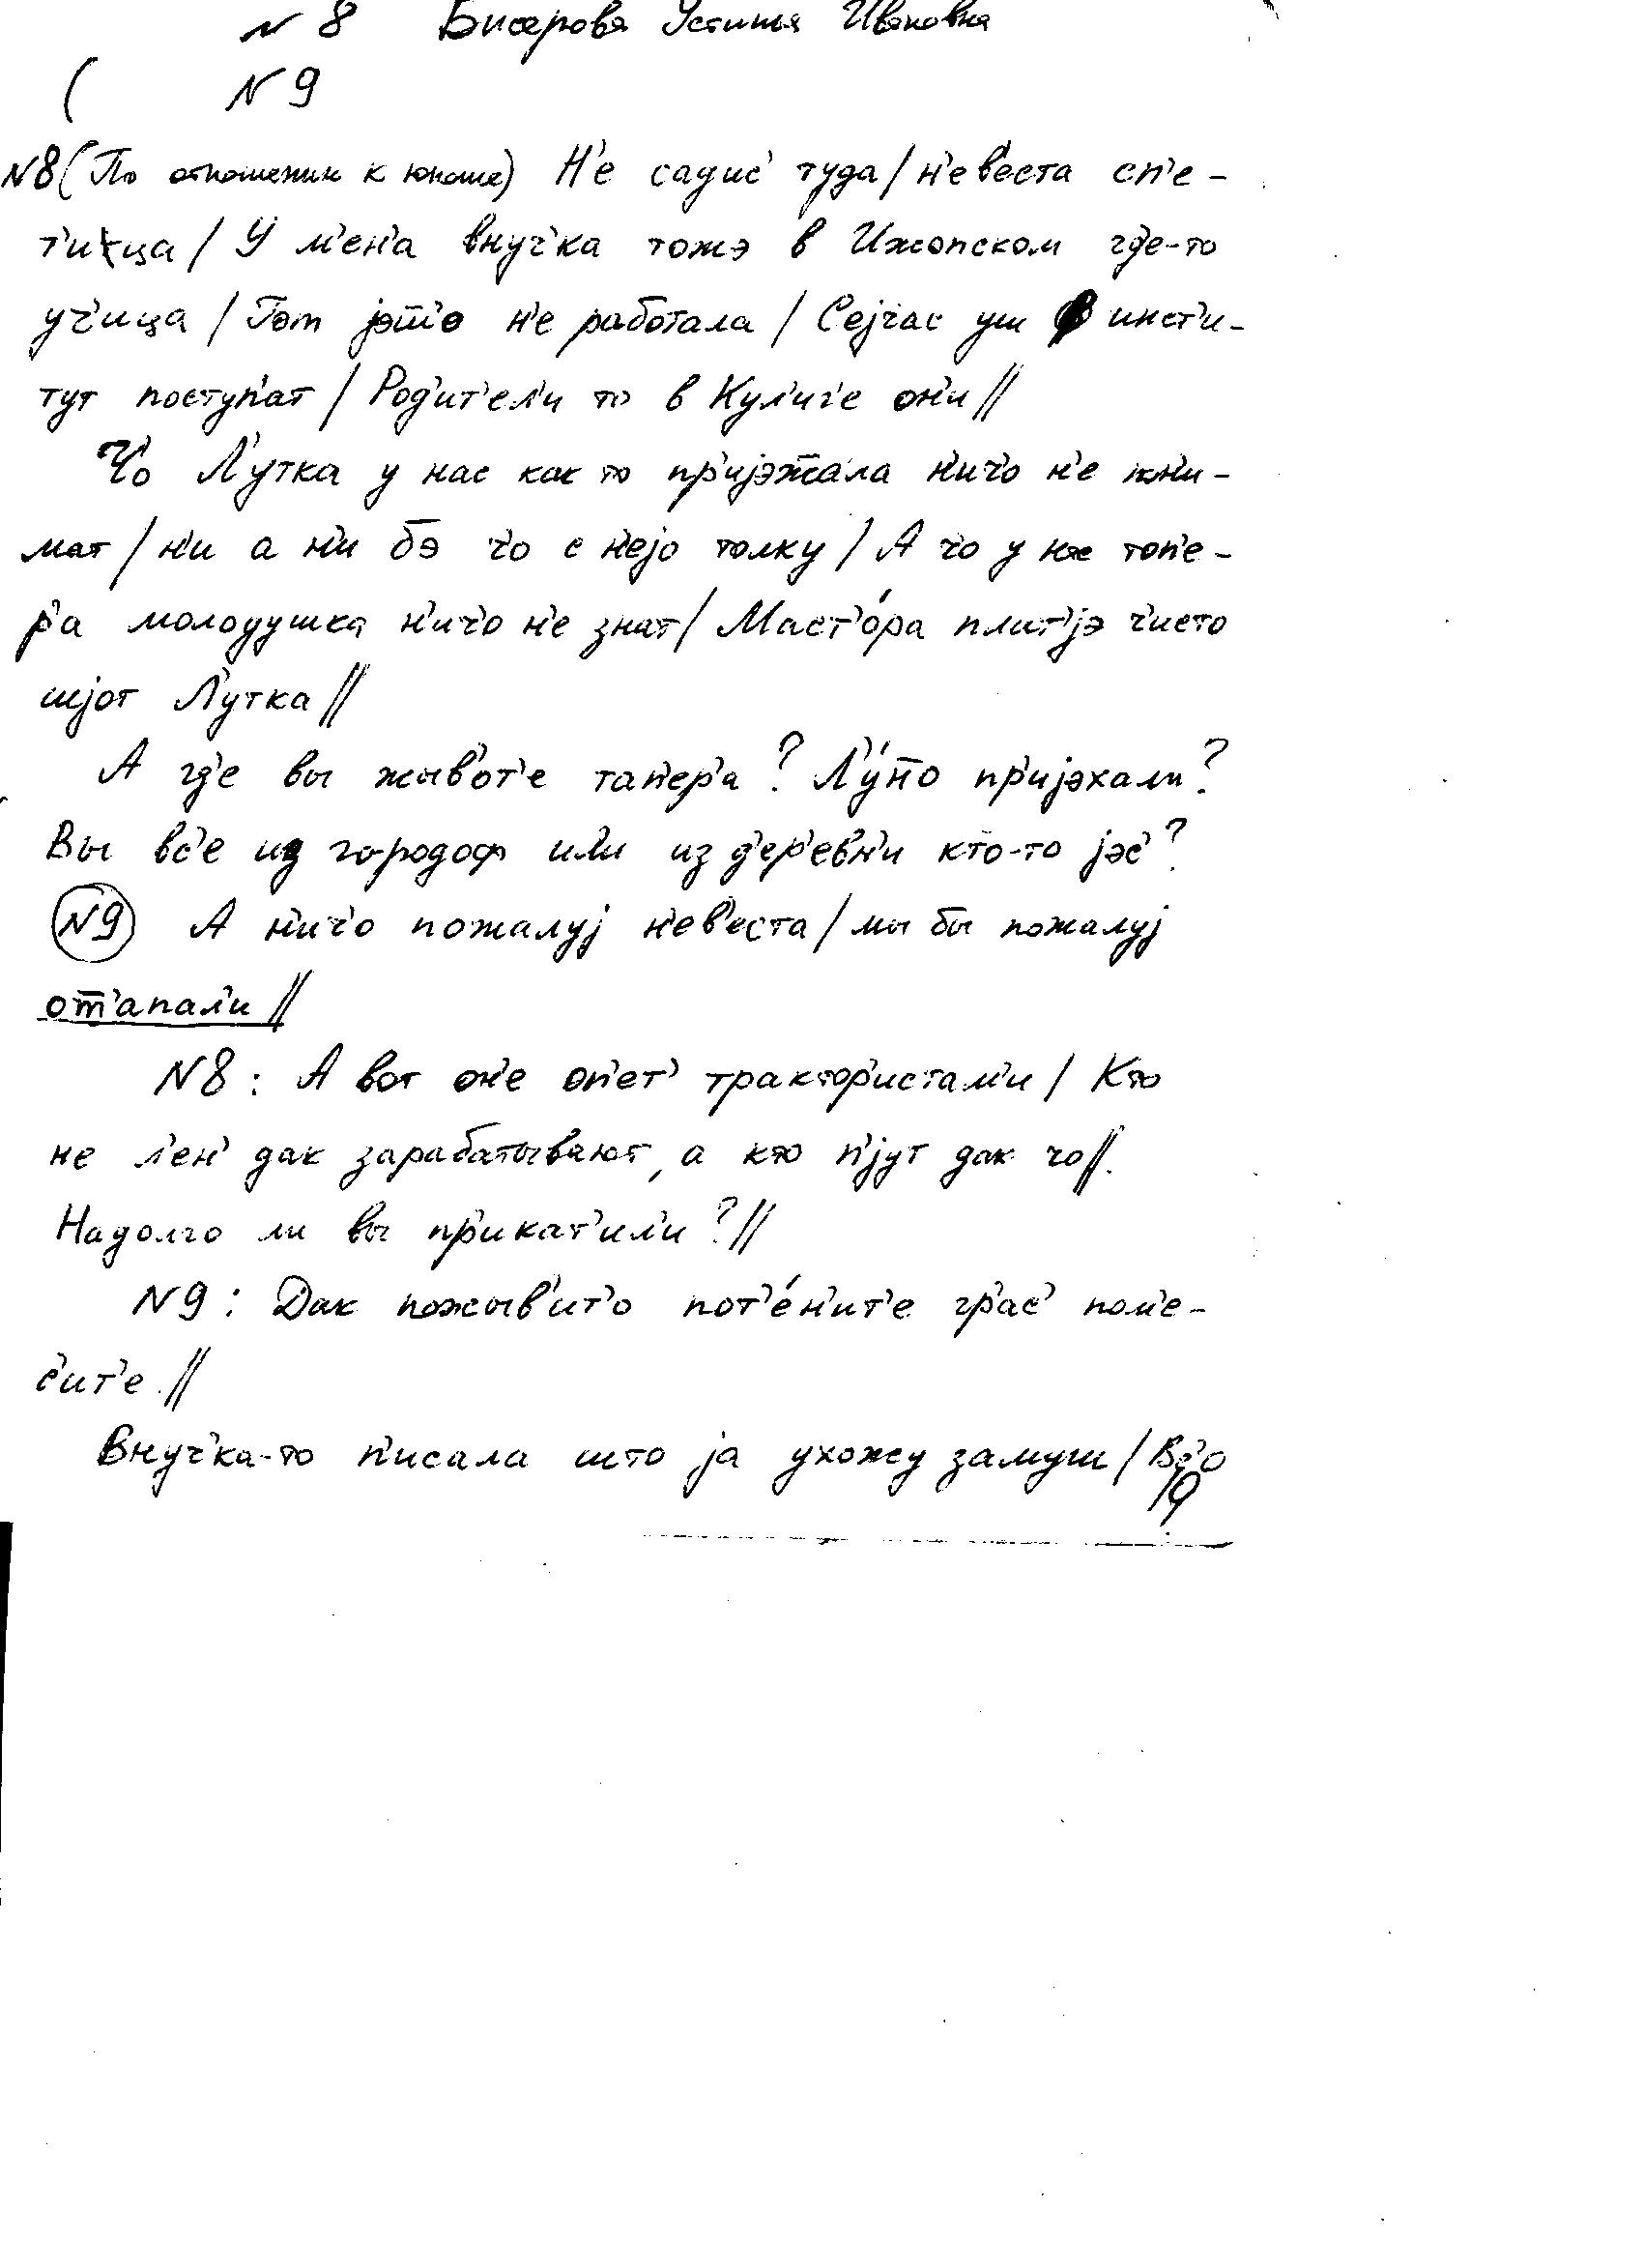 N 8 Бисерова Устинья Ивановна
( N 9
N8 (По отношению к юноше) Н'е садис' туда / н'ев'еста сп'е-
т'ица / У м'ен'а внуч'ка тожэ в Ижопском гд'е-то
уч'ица / Гот јэшо н'е работала / Сејчас уш в инст'и-
тут поступ'ат / Род'ит'ел'и то в Кул'иг'е он'и //
Ч'о Л'утка у нас как то пр'ијэжала н'ич'о н'е пон'и-
мат / н'и а н'и бэ ч'о с н'ејо толку / А ч'о у нас топ'е-
р'а молодушка н'ич'о н'е знат / Маст'о́ра плат'јэ ч'исто
шјот Л'утка //
А гд'е вы жыв'от'е тап'ер'а? Л'у́по пр'ијэхали?
Вы вс'е из городоф ил'и из д'ер'евн'и кто-то јэс'?
N9 А н'ич'о пожалуј н'ев'еста / мы бы пожалуј
от̄'апал'и //
N8 : А вот он'е оп'ет' трактор'истам'и / Кто
не л'ен' дак зарабатывают, а кто п'јут дак чо //.
Надолго ли вы пр'икат'ил'и? //
N9 : Дак пожыв'ит'о пот'е́н'ит'е гр'ас' пом'е-
с'ит'е. //
Внуч'ка-то п'исала што ја ухожу замуш / Вс'о
19